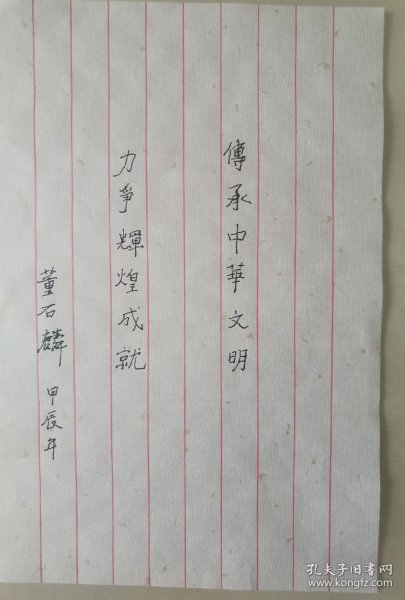 傳承中華文明
力爭輝煌成就
董石麟 甲辰年
孔夫子旧书网
www.kongfz.com